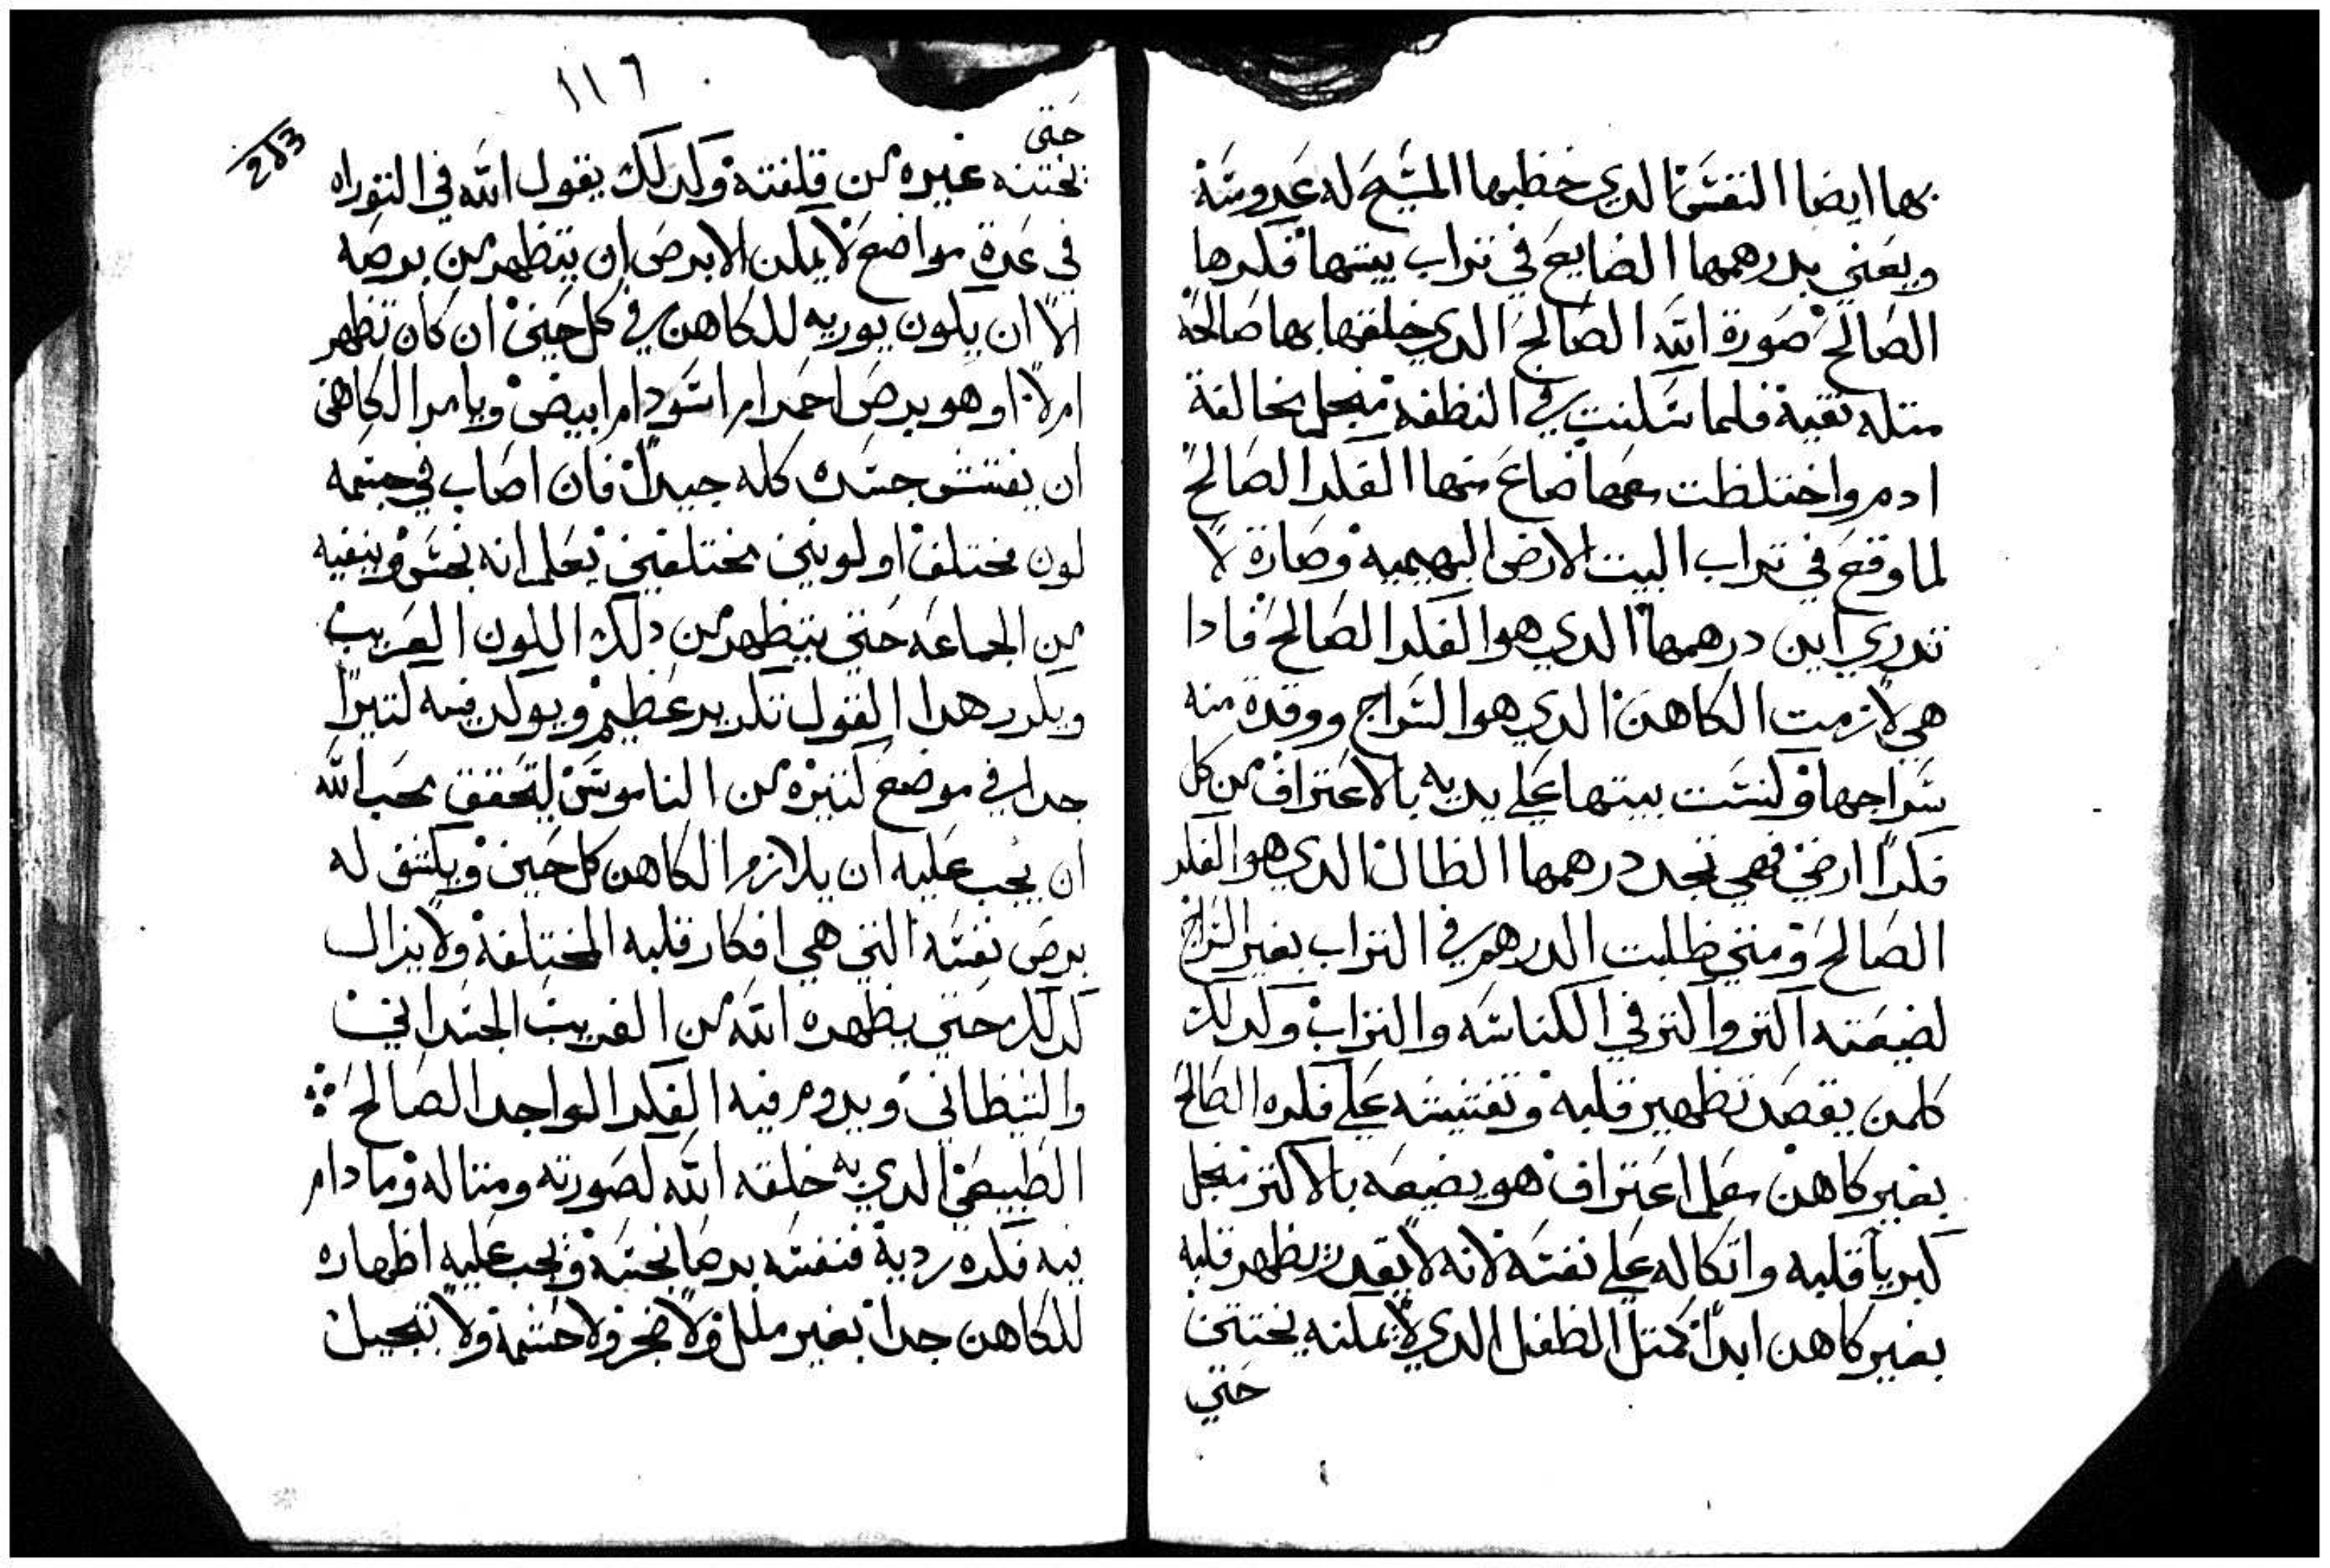 بها ايضا النفس الدي خطبها المسيح له عروسة
ويعني بدرهمها الضايع في تراب بيتها فكرها
الصالح صورة الله الصالح الدي خلقها بها صالحة
متله نقية فلما سكنت في النطفه منجل مخالفة
ادم واختلطت معها ضاع منها الفكر الصالح
لما وقع في تراب البيت الارضي البهيمية وصارة لا
تدري اين درهمها الدي هو الفكر الصالح فادا
هي لازمت الكاهن الدي هو السراج ووقدة منه
سراجها وكنست بيتها علي يديه بالاعتراف من كل
فكرا ارضي فهي تجد درهمها الظال الدي هو الفكر
الصالح ومتي طلبت الدرهم في التراب بغير السراج
لضيعته اكتر واكتر في الكناسه والتراب وكدلك
كلمن يقصد تطهير قلبه وتفتيشه علي فكره الصالح
بغير كاهن معلم اعتراف هو يضيعه بالاكتر منجل
كبريا قلبه واتكاله علي نفسه لانه لا يقدر يطهر قلبه
بغير كاهن ابدا كمتل الطفل الدي لا يمكنه يختتن
حتي
١١٦
253
حتى
يختنه غيره من قلفته وكدلك يقول الله في التوراه
في عدة مواضع لا يمكن الابرص ان يتطهر من برصه
الا ان يكون يوريه للكاهن في كل حين ان كان تطهر
ام لا او هو برص احمر ام اسود ام ابيض ويامر الكاهن
ان يفتش جسده كله جيدا فان اصاب في جسمه
لون مختلف او لونين مختلفين يعلم انه نجس وينفيه
من الجماعه حتي يتطهر من دلك اللون الغريب
ويكرر هدا القول تكرير عظيم ويوكد فيه كتيرا
جدا في موضع كتيره من الناموس ليتحقق محب الله
ان يجب عليه ان يلازم الكاهن كل حين ويكشف له
برص نفسه التي هي افكار قلبه المختلفة ولا يزال
كدلك حتي يطهره الله من الغريب الجسداني
والشيطاني ويدوم فيه الفكر الواحد الصالح
الطبيعي الدي به خلقه الله لصورته ومتاله وما دام
فيه فكره ردية فنفسه برصا نجسة ويجب عليه اظهاره
للكاهن جدا بغير ملل ولا ضجر ولا حشمة ولا تبجيل